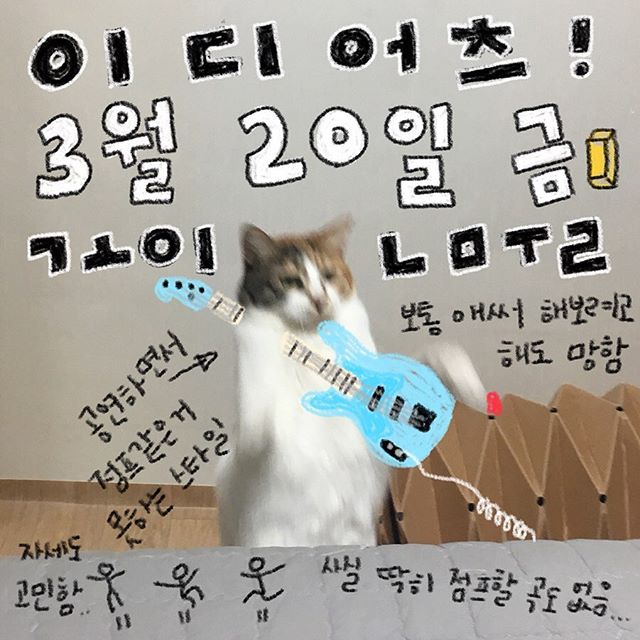 이디어츠!
3월 20일 금
ㄱㅗ이 ㄴㅁㅜㄹ
보통 애써 해보려고
해도 망함
공연하면서
점프같은거
못하는 스타일
자세도
고민함..
사실 딱히 점프할 곡도 없음...